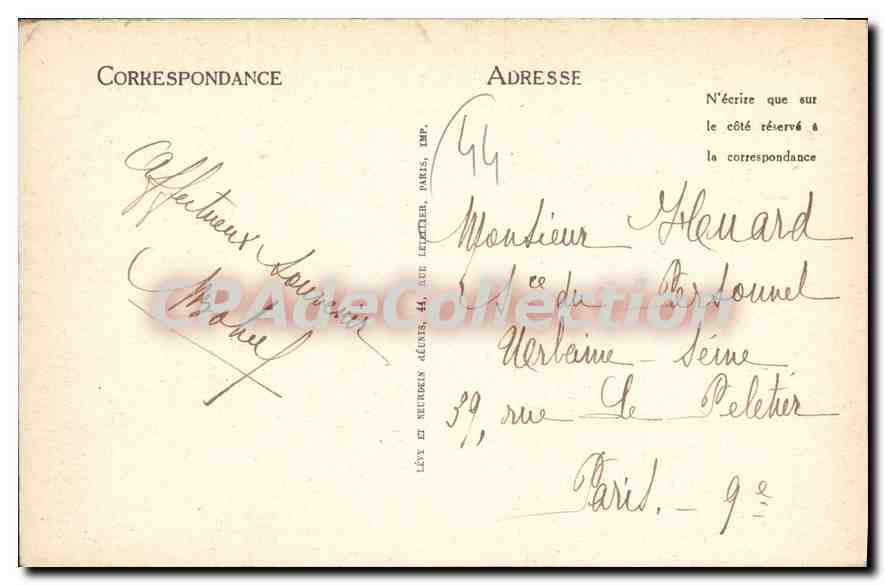 CORRESPONDANCE
Affectueux Souvenir
LÉVY ET NEURDEIN RÉUNIS, 44, RUE LETELLIER, PARIS, IMP.
ADRESSE
N'écrire que sur
le côté réservé à
la correspondance
44
Monsieur
Sce du Personnel
Urbaine - Seine
59, rue Le Peletier
Paris. - 9e
CPAdeCollection